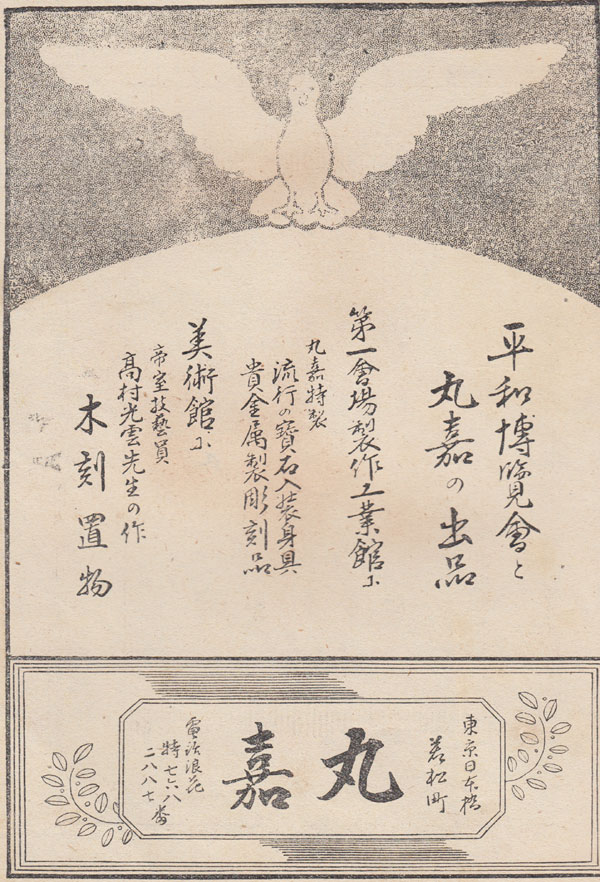 平和博覧會と
丸嘉の出品
第一會場製作工業館に
丸嘉特製
流行の寶石入装身具
貴金属製彫刻品
美術館に
帝室技藝員
高村光雲先生の作
木刻置物
東京日本橋
若松町
丸嘉
電話浪花
特七六八番
二八八七